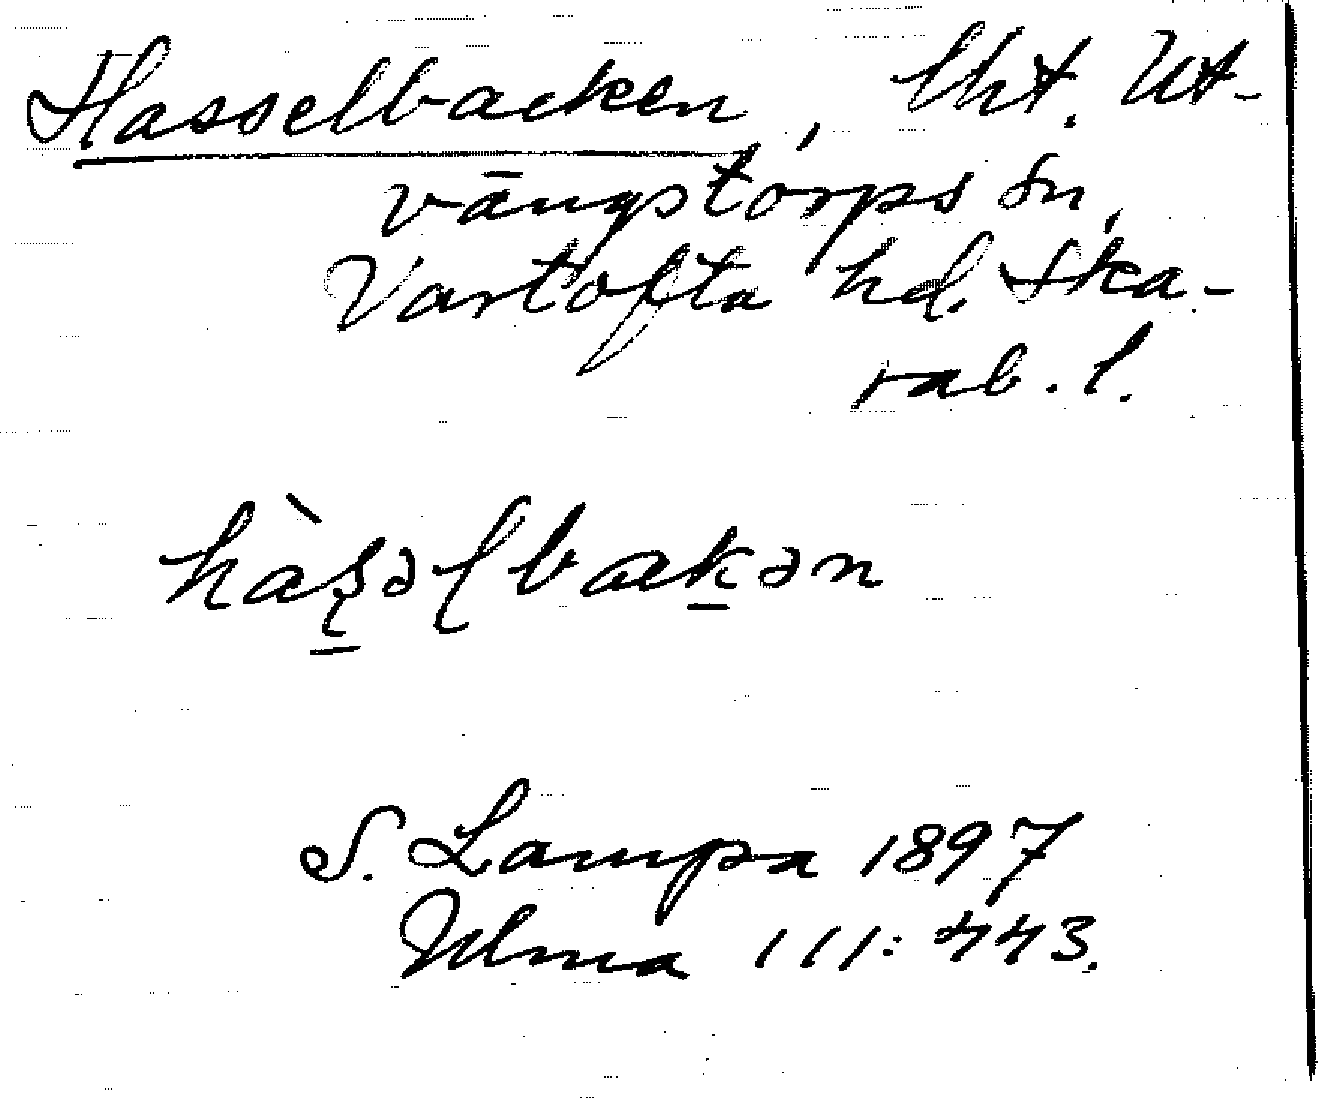 Hasselbacken, lht. Ut-
vängstorps sn,
Vartofta hd. Ska-
rab. l.
hàʂəɭbakən
S. Lampa 1897
Ulma 111:443.